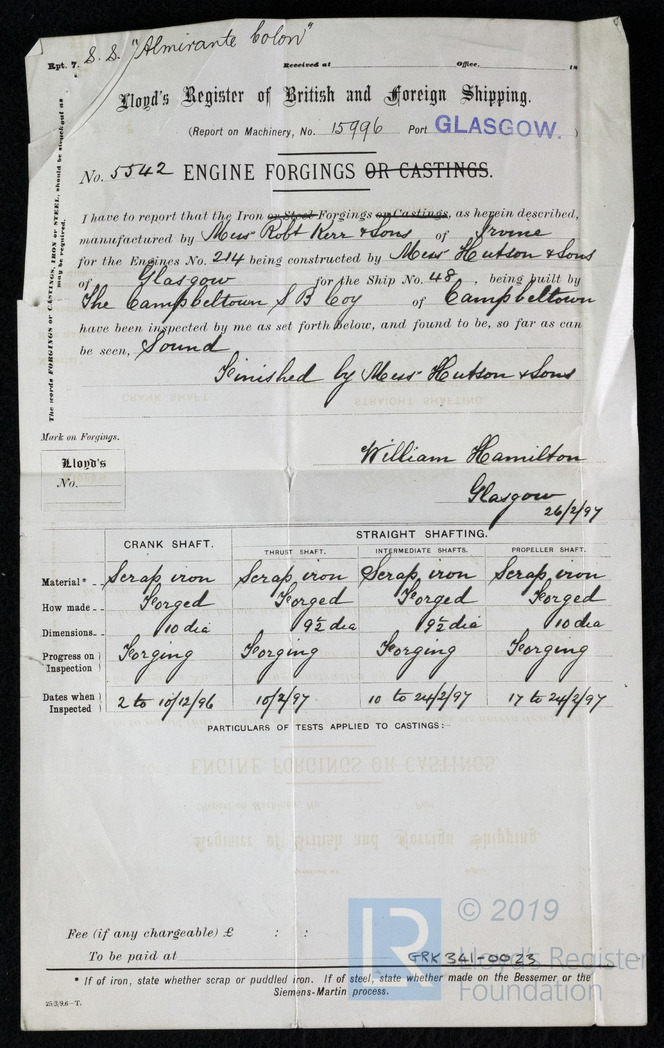 S. S. "Almirante Colon"
Rpt. 7. Received at Office. 18
Lloyd's Register of British and Foreign Shipping.
(Report on Machinery, No. 15996 Port GLASGOW. )
No. 5542 ENGINE FORGINGS OR CASTINGS.
The words FORGINGS or CASTINGS, IRON or STEEL, should be struck out as
may be required.
I have to report that the Iron or Steel Forgings or Castings, as herein described,
manufactured by Messrs Robt Kerr & Sons of Irvine
for the Engines No. 214 being constructed by Messrs Hutson & Sons
of Glasgow for the Ship No. 48, being built by
The Campbeltown S B Coy of Campbeltown
have been inspected by me as set forth below, and found to be, so far as can
be seen, Sound
Finished by Messrs Hutson & Sons
Mark on Forgings.
Lloyd's
No.
William Hamilton
Glasgow
26/2/97
CRANK SHAFT. STRAIGHT SHAFTING.
THRUST SHAFT. INTERMEDIATE SHAFTS. PROPELLER SHAFT.
Material* Scrap iron Scrap iron Scrap iron Scrap iron
How made Forged Forged Forged Forged
Dimensions 10 dia 9½ dia 9½ dia 10 dia
Progress on Inspection Forging Forging Forging Forging
Dates when Inspected 2 to 10/12/96 10/2/97 10 to 24/2/97 17 to 24/2/97
PARTICULARS OF TESTS APPLIED TO CASTINGS:—
Fee (if any chargeable) £ : :
To be paid at
GRK 341-0023
* If of iron, state whether scrap or puddled iron. If of steel, state whether made on the Bessemer or the
Siemens-Martin process.
25/3/96—T.
LR © 2019
Lloyd's Register
Foundation